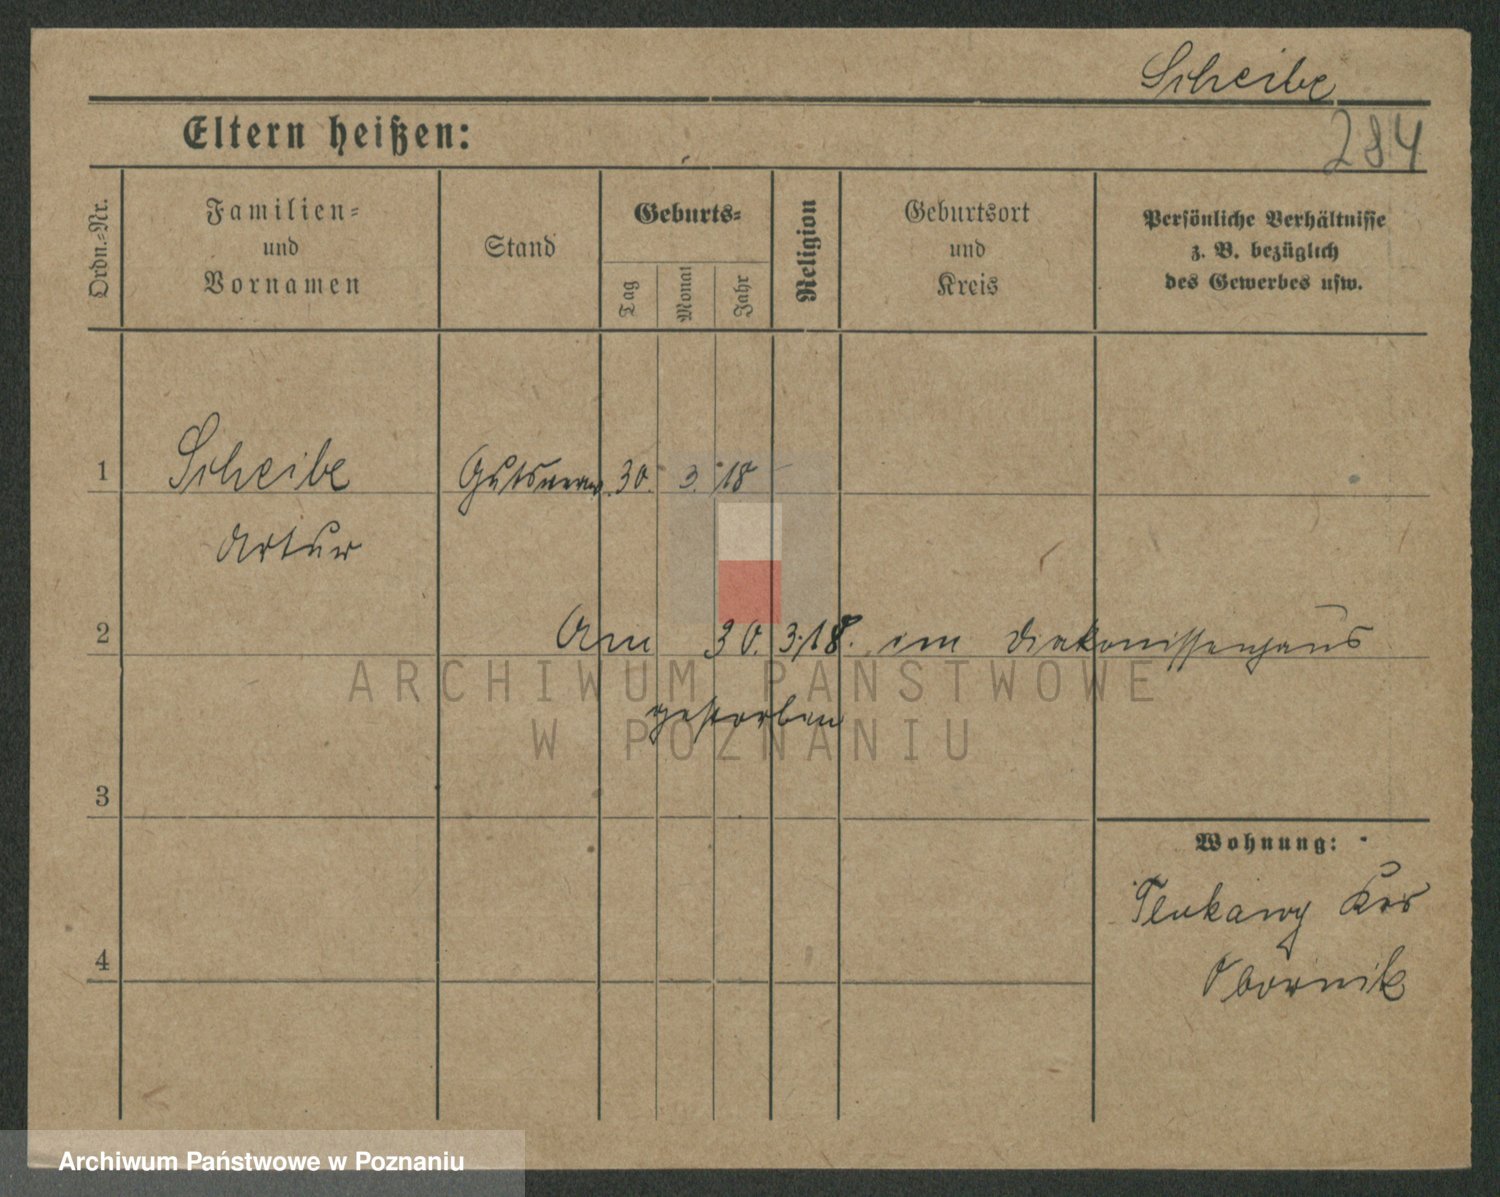 Scheibe
284
Eltern heißen:
Ordn.-Nr.
Familien-
und
Vornamen
Stand
Geburts-
Tag
Monat
Jahr
Religion
Geburtsort
und
Kreis
Persönliche Verhältnisse
z. B. bezüglich
des Gewerbes usw.
1 Scheibe Gutsverw. 30. 3. 18
Artur
2 Am 30.3.18. im Diakonissenhaus
gestorben
ARCHIWUM PAŃSTWOWE
W POZNANIU
3
Wohnung:
Krs
4 Obornik
Archiwum Państwowe w Poznaniu